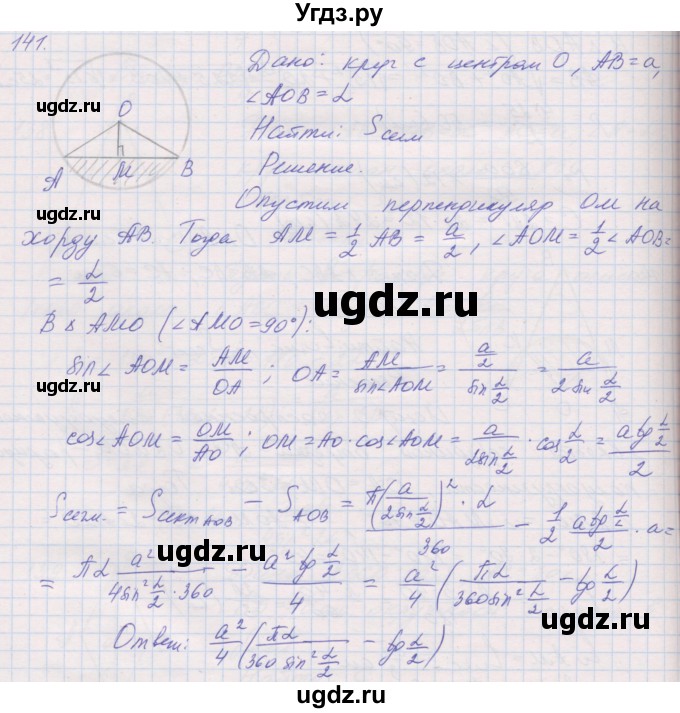 ©Устрой.ру
141.
Дано: круг с центром О, AB = a,
∠AOB = α
Найти: Sсегм
Решение.
O
A M B
ugdz.ru
ugdz.ru
Опустим перпендикуляр OM на
хорду AB. Тогда AM = 1/2 AB = a/2, ∠AOM = 1/2 ∠AOB =
= α/2
ugdz.ru
ugdz.ru
В △ AMO (∠AMO = 90°):
sin∠AOM = AM/OA; OA = AM/sin∠AOM = (a/2)/(sin α/2) = a/(2 sin α/2)
ugdz.ru
ugdz.ru
cos∠AOM = OM/AO; OM = AO · cos∠AOM = a/(2sin α/2) · cos α/2 = (a tg α/2)/2
Sсегм. = Sсект AOB − S AOB = (π(a/(2sin α/2))² · α)/360 − 1/2 (a tg α/2)/2 · a =
ugdz.ru
ugdz.ru
= πα a²/(4sin² α/2 · 360) − (a² tg α/2)/4 = a²/4 (πα/(360 sin² α/2) − tg α/2)
Ответ: a²/4 (πα/(360 sin² α/2) − tg α/2)
ugdz.ru
ugdz.ru
ugdz.ru